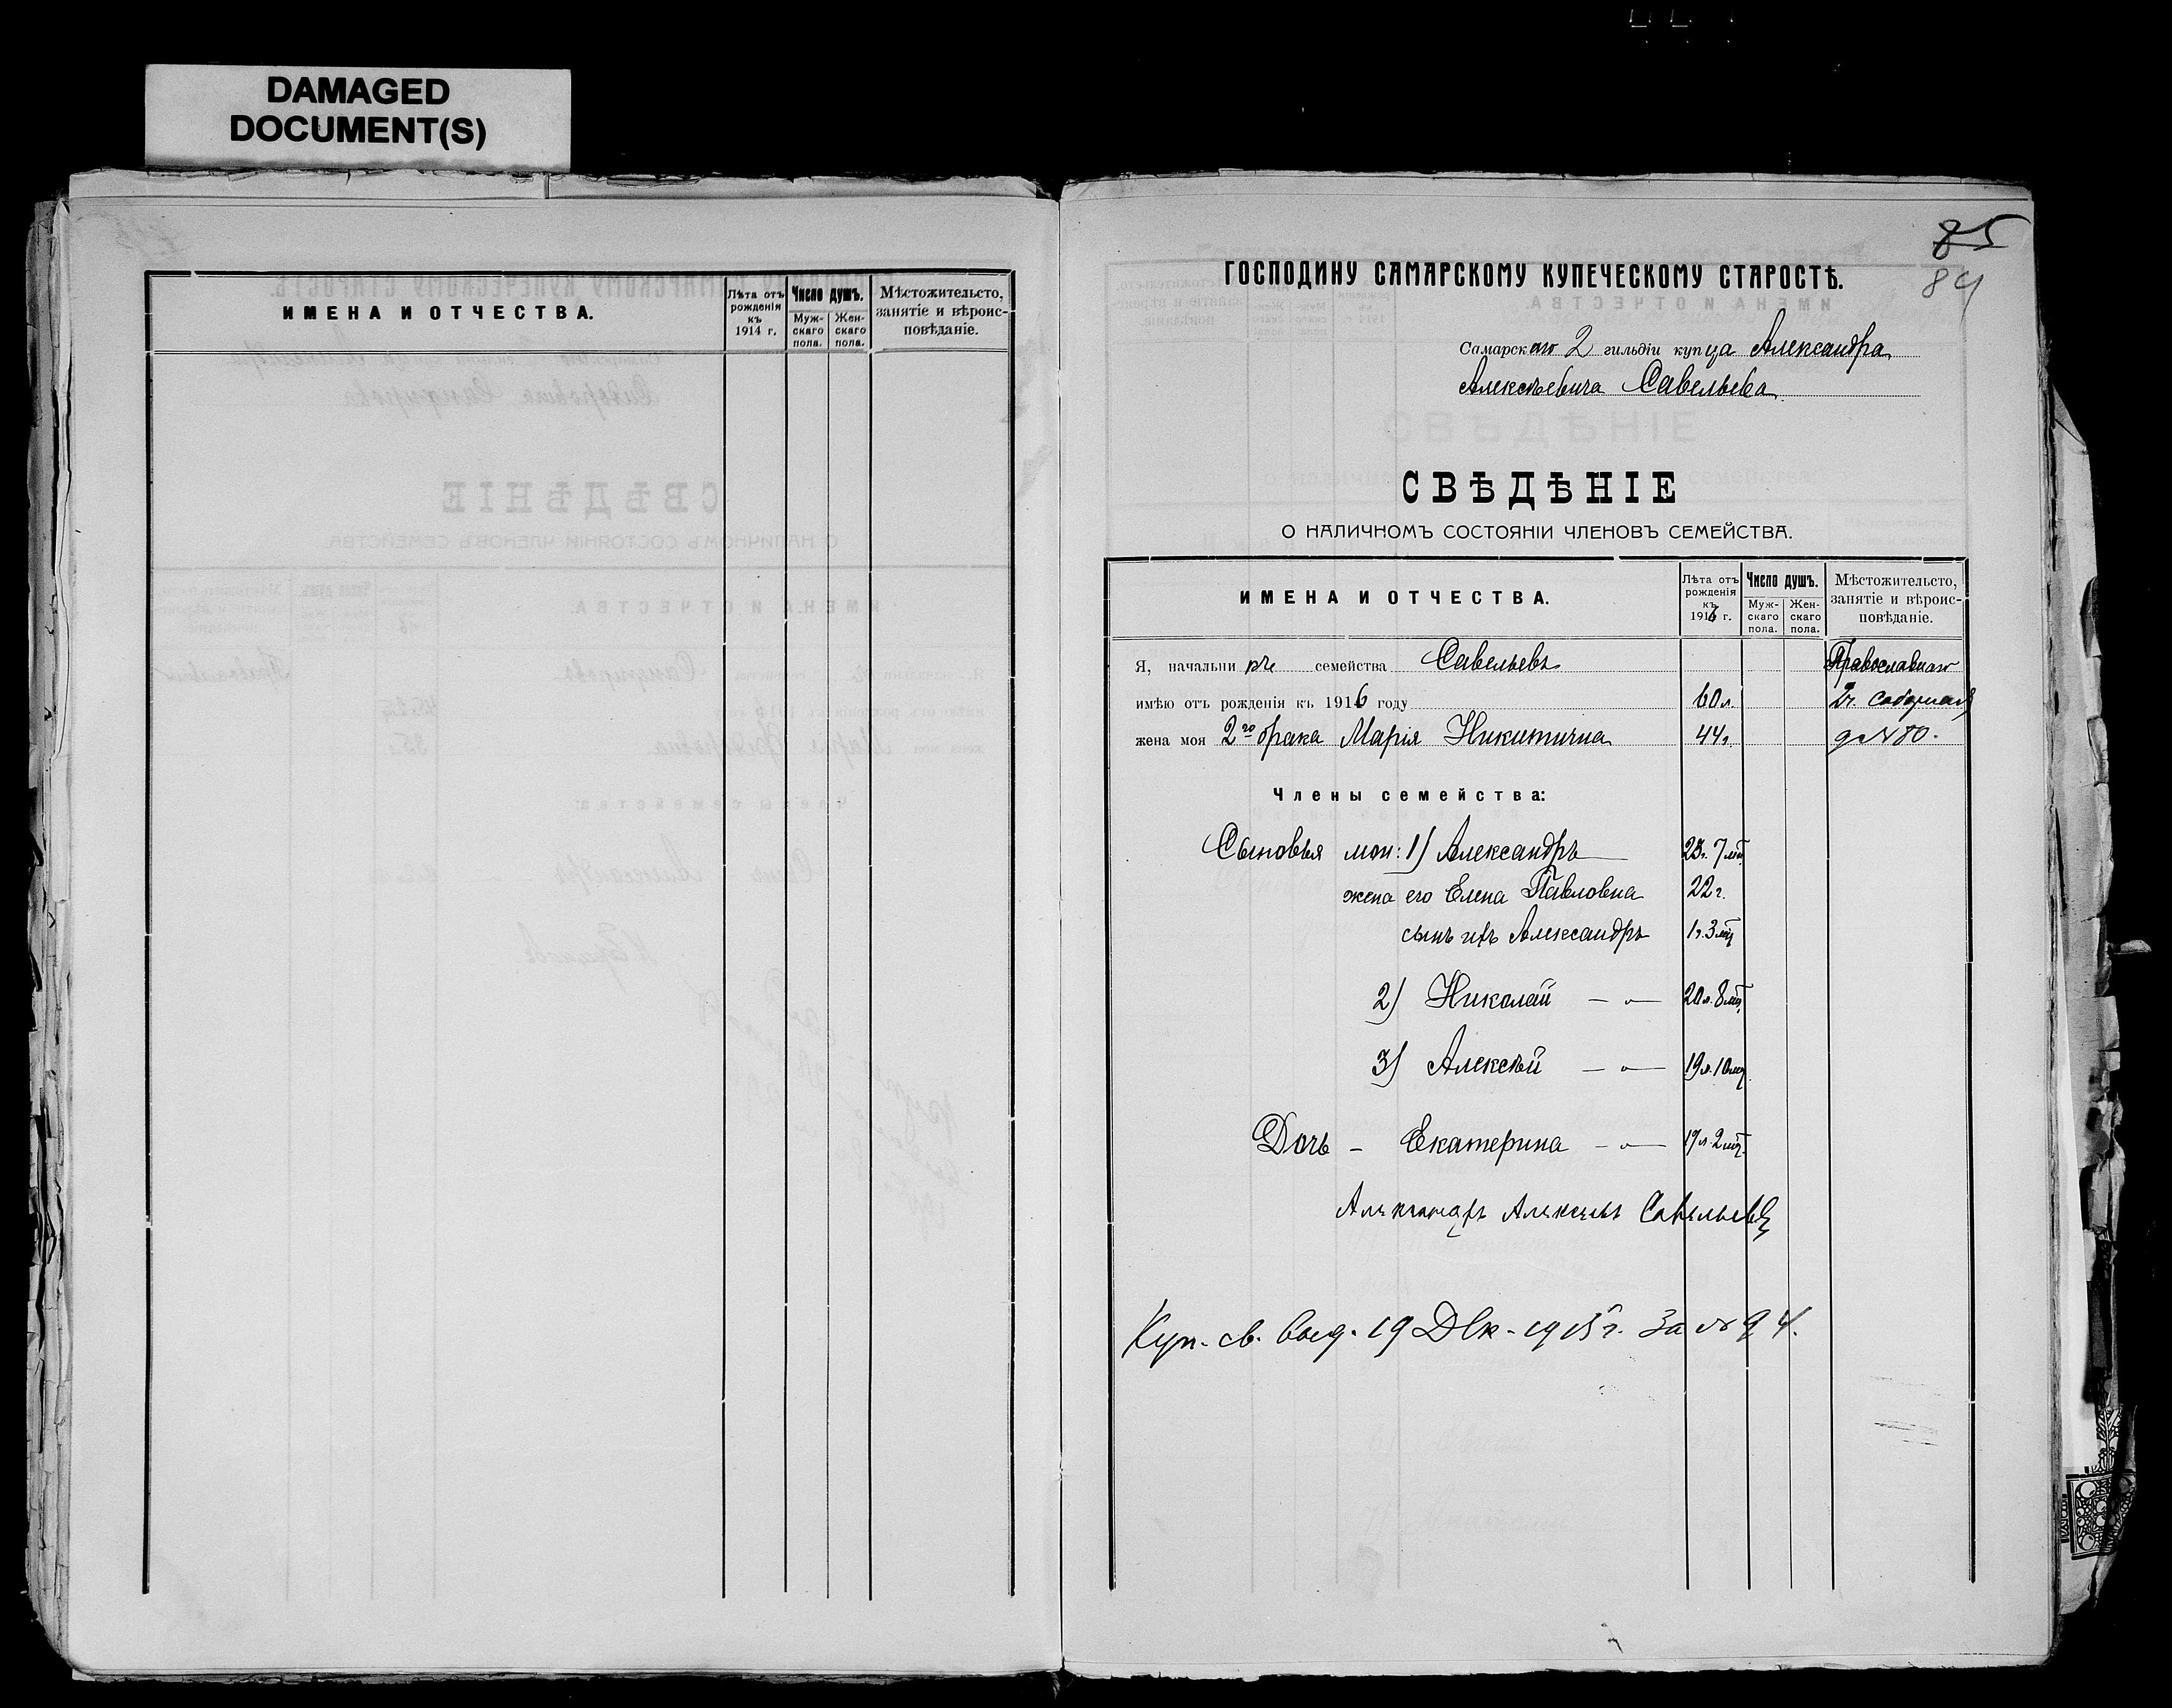 DAMAGED
DOCUMENT(S)
ИМЕНА И ОТЧЕСТВА.
Лѣта отъ рожденія къ 1914 г.
Число душъ.
Мужскаго пола.
Женскаго пола.
Мѣстожительсто, занятіе и вѣроисповѣданіе.
85
84
ГОСПОДИНУ САМАРСКОМУ КУПЕЧЕСКОМУ СТАРОСТѢ.
Самарскаго 2 гильдіи купца Александра
Алексѣевича Савельева
СВѢДѢНІЕ
О НАЛИЧНОМЪ СОСТОЯНІИ ЧЛЕНОВЪ СЕМЕЙСТВА.
ИМЕНА И ОТЧЕСТВА.
Лѣта отъ рожденія къ 1916 г.
Число душъ.
Мужскаго пола.
Женскаго пола.
Мѣстожительсто, занятіе и вѣроисповѣданіе.
Я, начальникъ семейства Савельевъ Православнаго
имѣю отъ рожденія къ 1916 году 60 л. 2ч. Соборная
жена моя 2го брака Марія Никитична 44 г. д №80.
Члены семейства:
Сыновья мои: 1) Александръ 23г. 7 мѣ
жена его Елена Павловна 22 г.
сынъ ихъ Александръ 1г. 3 мѣ
2) Николай — " — 20 л. 8 мѣ.
3) Алексѣй — " — 19 л. 10 мѣ.
Дочь - Екатерина — " — 17 л. 2 мѣ.
Александръ Алексевъ Савельевъ
Куп. св. выд. 19 Дек. 1915 г. за № 94.